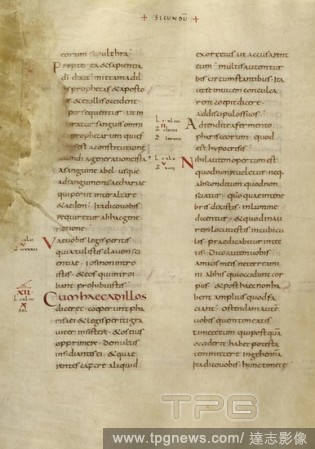 + SECUNDŪ +
eorum sepulchra.
Propterea & sapientia
di dixit mittam ad il
los prophetas & aposto
los & ex illis occident
& persequentur ut in
quiratur sanguis omni
um prophetarum qui ef
fusus est a constitutione
mundi a generatione ista
a sanguine abel usque
ad sanguinem zachariae
qui periit inter altare
& aedem. Ita dico uobis
requiretur ab hac gene
ratione.
Vae uobis legis peritis
quia tulistis clauem scien
tiae ipsi non introis
tis & eos qui introi
bant prohibuistis.
XII
Cum haec ad illos
diceret coeperunt pha
risaei & legis periti graui
ter insistere & os eius
opprimere de multis
insidiantes ei & quae
rentes capere aliquid
ex ore eius ut accusarent
eum multis autem tur
bis circumstantibus ita
ut se inuicem conculca
rent coepit dicere
ad discipulos suos
Adtendite a fermento
pharisaeorum quod
est hypocrisis
Nihil autem opertum est
quod non reueletur neq.
absconditum quod non
sciatur quo quae in tene
bris dixistis in lumine
dicentur & quod in au
rem locuti estis in cubicu
lis praedicabitur in tec
tis Dico autem uobis
amicis meis ne terreami
ni ab his qui occidunt cor
pus & post haec non ha
bent amplius quod fa
ciant ostendam autem
uobis quem timeatis
timete eum qui postquā
occiderit habet potesta
tem mittere in gehennā
Ita dico uobis hunc timete
TPG
www.tpgnews.com/達志影像